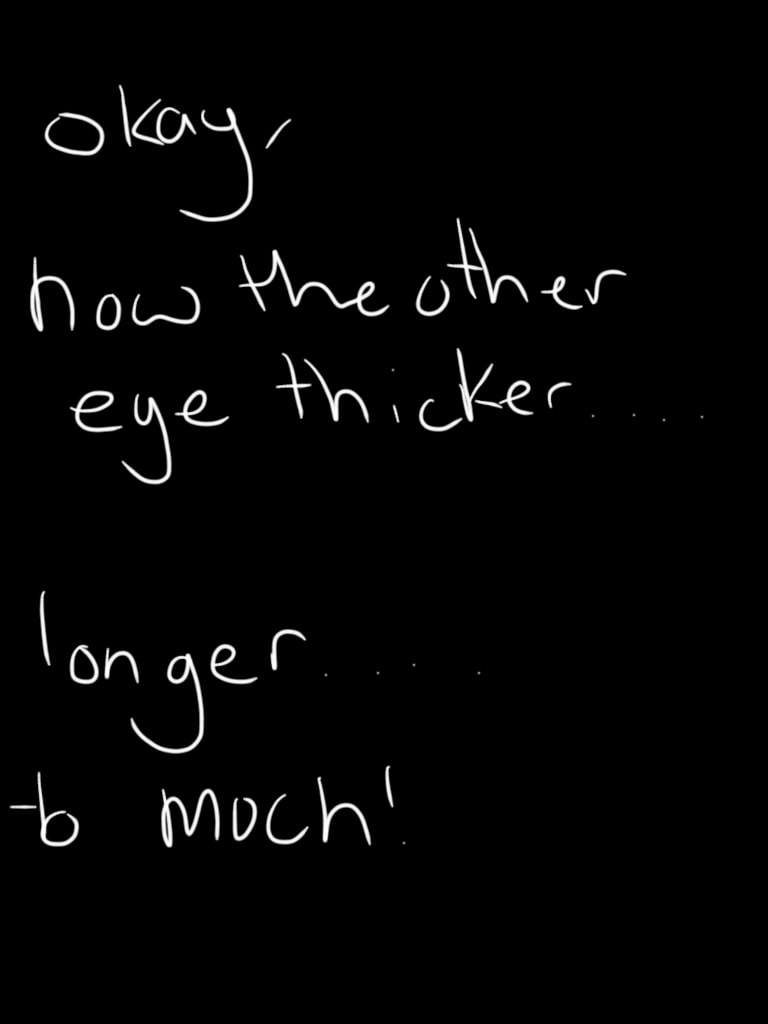 okay,
now the other
eye thicker....
longer....
to much!